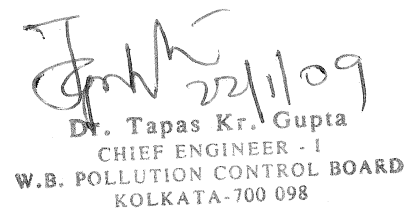 22/1/09
Dr. Tapas Kr. Gupta
CHIEF ENGINEER - I
W.B. POLLUTION CONTROL BOARD
KOLKATA-700 098